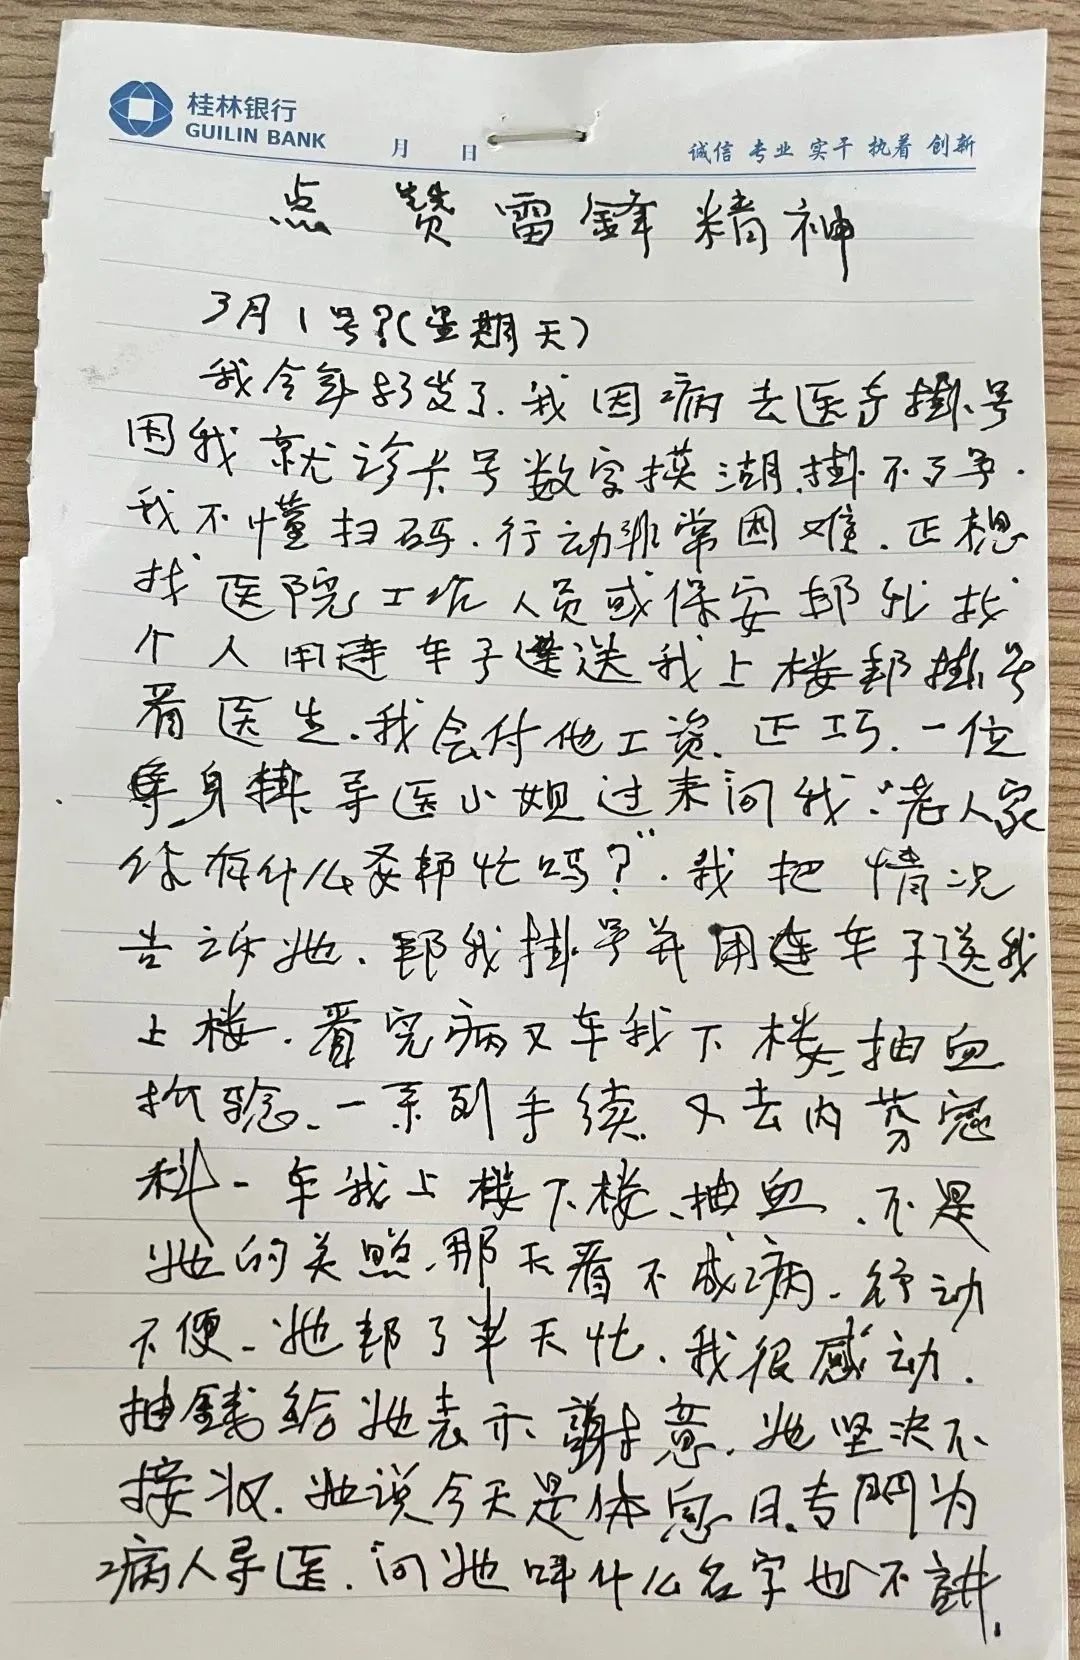 桂林银行
GUILIN BANK
月 日
诚信 专业 实干 执着 创新
点赞雷锋精神
3月1号?(星期天)
我今年83岁了.我因病去医寺掛号
因我就诊卡号数字摸湖.掛不了号.
我不懂扫码.行动非常困难.正想
找医院工作人员或保安邦我找
个人用连车子送我上楼邦掛号
看医生.我会付他工资.正巧.一位
身掛导医小姐过来问我:"老人家
你有什么要帮忙吗?".我把情况
告诉她.邦我掛号并用连车子送我
上楼.看完病又车我下楼抽血
抗验.一系列手续.又去内芬宓
科-车我上楼下楼、抽血.不是
她的关照.那天看不成病.行动
不便-她邦了半天忙.我很感动.
抽錢给她表示謝意.她坚决不
接收.她说今天是休息日.专門为
病人导医.问她叫什么名字也不讲.